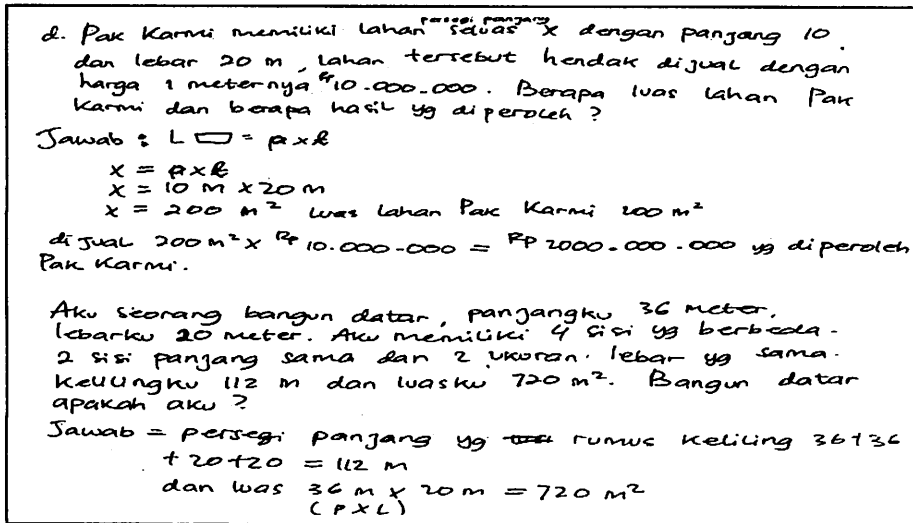 d. Pak Karmi memiliki lahan persegi panjang seluas x dengan panjang 10
dan lebar 20 m, lahan tersebut hendak dijual dengan
harga 1 meternya Rp 10.000.000. Berapa luas lahan Pak
Karmi dan berapa hasil yg diperoleh ?
Jawab : L ▭ = p x l
x = p x l
x = 10 m x 20 m
x = 200 m² luas lahan Pak Karmi 200 m²
dijual 200 m² x Rp 10.000.000 = Rp 2000.000.000 yg diperoleh
Pak Karmi.
Aku seorang bangun datar, panjangku 36 meter.
lebarku 20 meter. Aku memiliki 4 sisi yg berbeda.
2 sisi panjang sama dan 2 ukuran lebar yg sama.
Kelilingku 112 m dan luasku 720 m². Bangun datar
apakah aku ?
Jawab = persegi panjang yg rumus keliling 36+36
+ 20+20 = 112 m
dan luas 36 m x 20 m = 720 m²
(P X L)